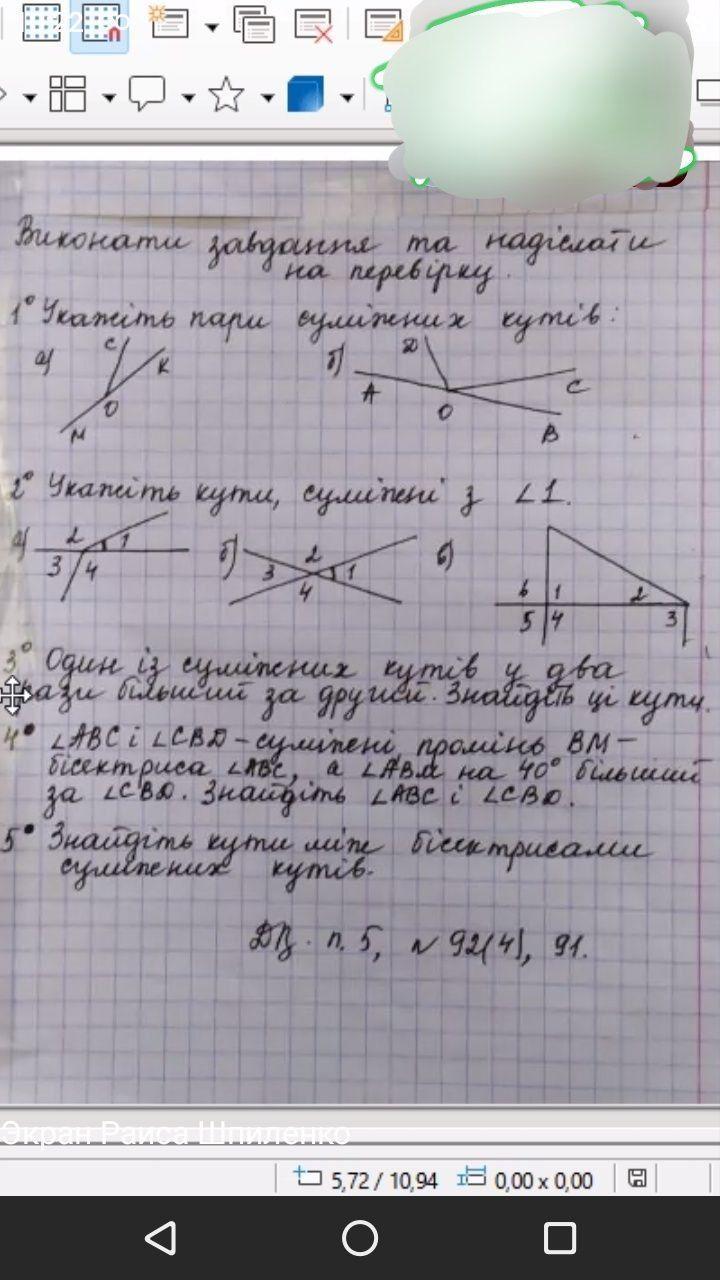 Виконати завдання та надіслати
на перевірку.
1° Укажіть пари суміжних кутів:
а) С К О М
б) D A O C B
2° Укажіть кути, суміжні з ∠1.
а) 2 1 3 4
б) 2 3 1 4
в) 6 1 2 5 4 3
3° Один із суміжних кутів у два
рази більший за другий. Знайдіть ці кути.
4° ∠ABC і ∠CBD – суміжні, промінь BM –
бісектриса ∠ABC, а ∠ABM на 40° більший
за ∠CBD. Знайдіть ∠ABC і ∠CBD.
5° Знайдіть кути між бісектрисами
суміжних кутів.
ДЗ. п. 5, № 92(4), 91.
Экран Раиса Шпиленко
5,72 / 10,94 0,00 x 0,00